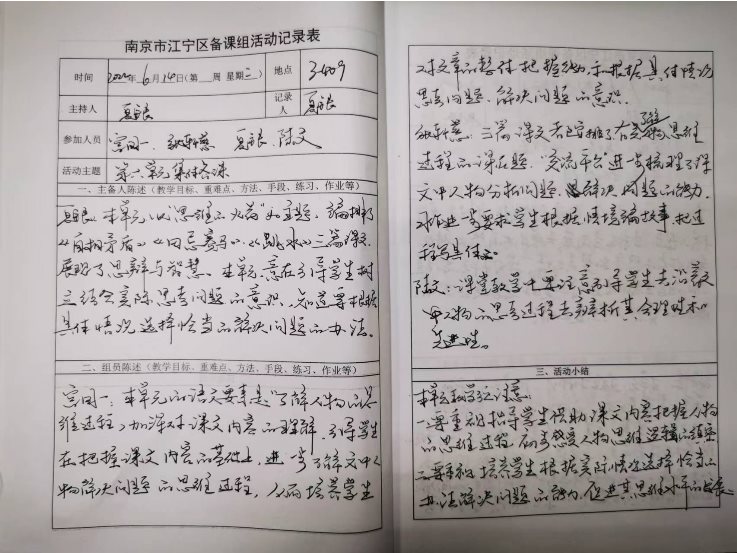 南京市江宁区备课组活动记录表
时间 2022年6月14日(第 周 星期二) 地点 3409
主持人 夏 记录人 夏
参加人员 宫同一、 夏 陆文
活动主题 第六单元集体备课
一、主备人陈述(教学目标、重难点、方法、手段、练习、作业等)
夏 本单元以"思维的火花"为主题,编排了
《自相矛盾》《田忌赛马》、《跳水》三篇课文,
展现了思辨与智慧。本单元意在引导学生树
立结合实际思考问题的意识,知道要根据
具体情况选择恰当的解决问题的办法。
二、组员陈述(教学目标、重难点、方法、手段、练习、作业等)
宫同一:本单元的语文要素是"了解人物的思
维过程,加深对课文内容的理解",引导学生
在把握课文内容的基础上,进一步了解文中人
物解决问题的思维过程,从而培养学生
对文章的整体把握能力和根据具体情况
思考问题、解决问题的意识。
三篇课文都安排了有关人物思维
过程的课后题,"交流平台"进一步梳理了课
文中人物分析问题、解决问题的能力,
习作进一步要求学生根据情境编故事,把过
程写具体。
陆文:课堂教学上要注意引导学生去沿着文
中人物的思考过程去辨析其合理性和
先进性。
三、活动小结
本单元教学应注意:
一、要重视指导学生借助课文内容把握人物
的思维过程,而感受人物思维逻辑的缜密
二、要重视培养学生根据实际情况选择恰当的
办法解决问题的能力,促进其思维水平的发展